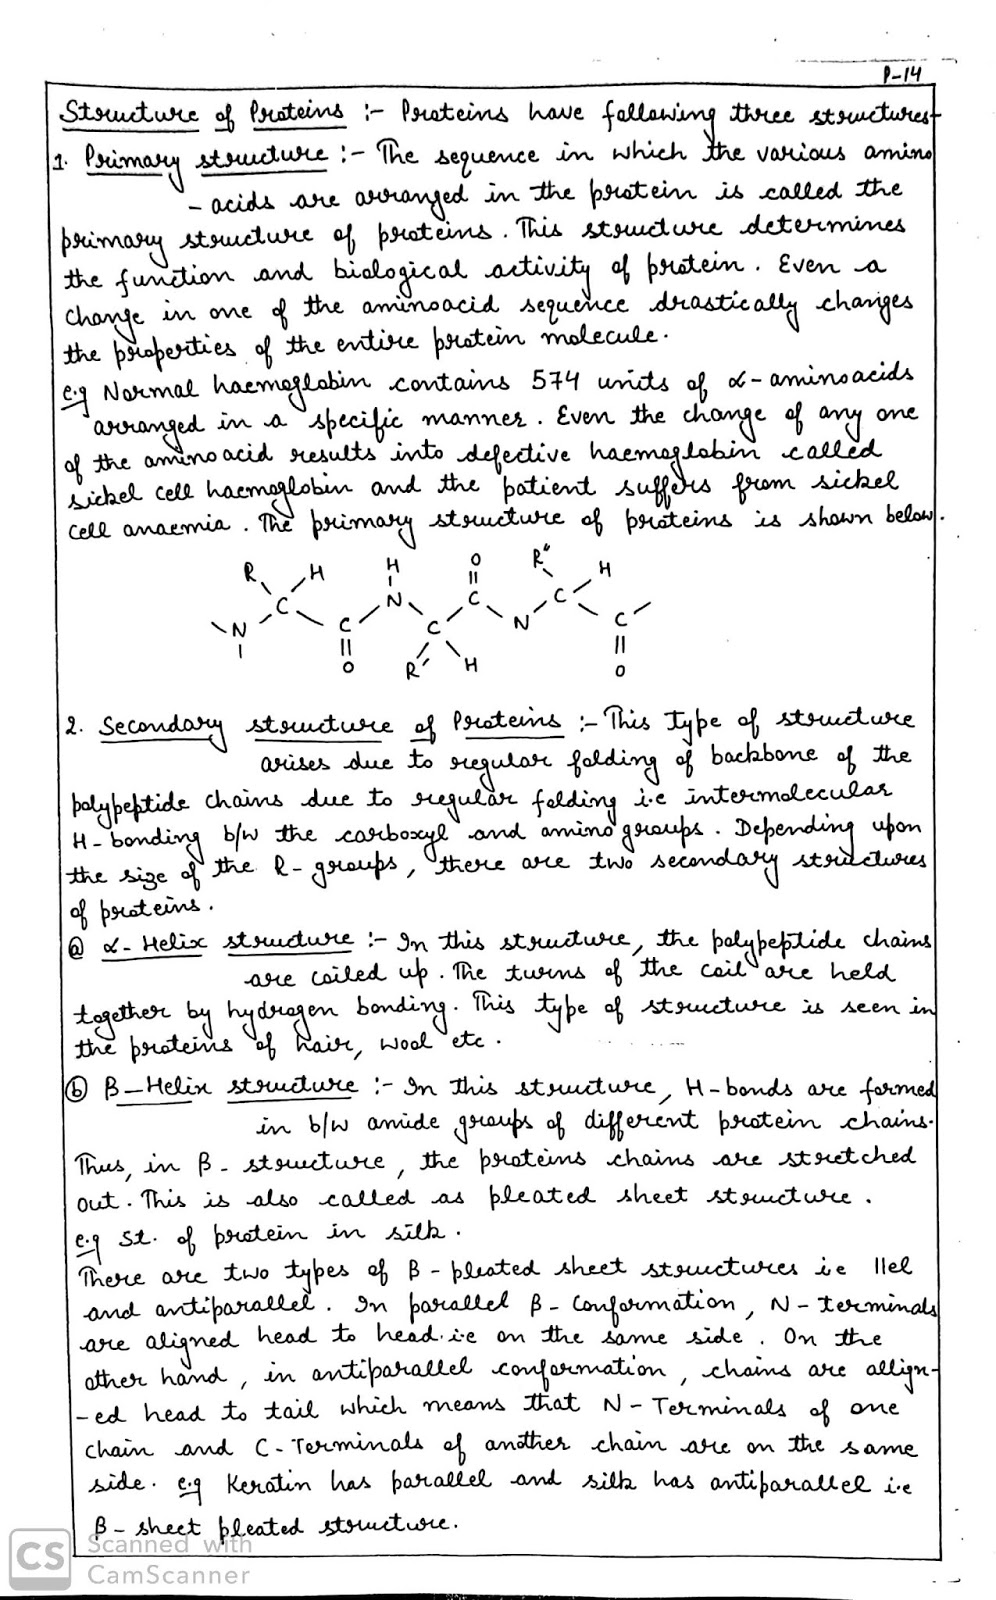 P-14
Structure of Proteins :- Proteins have following three structures-
1. Primary structure :- The sequence in which the various amino
- acids are arranged in the protein is called the
primary structure of proteins. This structure determines
the function and biological activity of protein. Even a
change in one of the aminoacid sequence drastically changes
the properties of the entire protein molecule.
e.g Normal haemoglobin contains 574 units of α-aminoacids
arranged in a specific manner. Even the change of any one
of the amino acid results into defective haemoglobin called
sickel cell haemoglobin and the patient suffers from sickel
cell anaemia. The primary structure of proteins is shown below.
R H H O R" H
N C C N C C N C C
O R' H O
2. Secondary structure of Proteins :- This type of structure
arises due to regular folding of backbone of the
polypeptide chains due to regular folding i.e intermolecular
H-bonding b/w the carboxyl and amino groups. Depending upon
the size of the R-groups, there are two secondary structures
of proteins.
ⓐ α-Helix structure :- In this structure, the polypeptide chains
are coiled up. The turns of the coil are held
together by hydrogen bonding. This type of structure is seen in
the proteins of hair, wool etc.
ⓑ β-Helix structure :- In this structure, H-bonds are formed
in b/w amide groups of different protein chains.
Thus, in β-structure, the proteins chains are stretched
out. This is also called as pleated sheet structure.
e.g St. of protein in silk.
There are two types of β-pleated sheet structures i.e llel
and antiparallel. In parallel β-conformation, N-terminals
are aligned head to head. i.e on the same side. On the
other hand, in antiparallel conformation, chains are allign-
-ed head to tail which means that N-Terminals of one
chain and C-Terminals of another chain are on the same
side. e.g Keratin has parallel and silk has antiparallel i.e
β-sheet pleated structure.
CS Scanned with
CamScanner